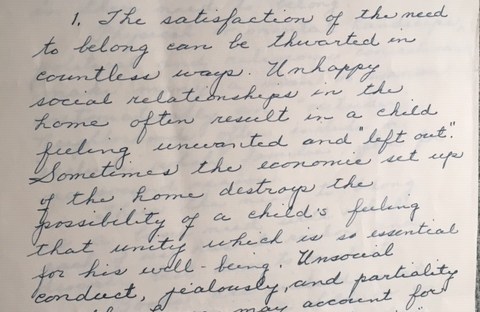 1. The satisfaction of the need
to belong can be thwarted in
countless ways. Unhappy
social relationships in the
home often result in a child
feeling unwanted and "left out".
Sometimes the economic set up
of the home destroys the
possibility of a child's feeling
that unity which is so essential
for his well-being. Unsocial
conduct, jealously, and partiality
may account for